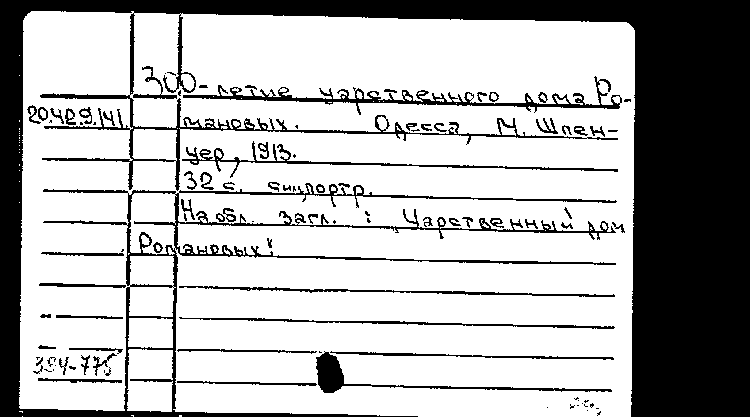 300-летие царственного дома Ро-
20.429/141. мановых. Одесса, М. Шпен-
цер, 1913.
32 с. с илл. портр.
На обл. загл.: Царственный дом
Романовых!
394-775